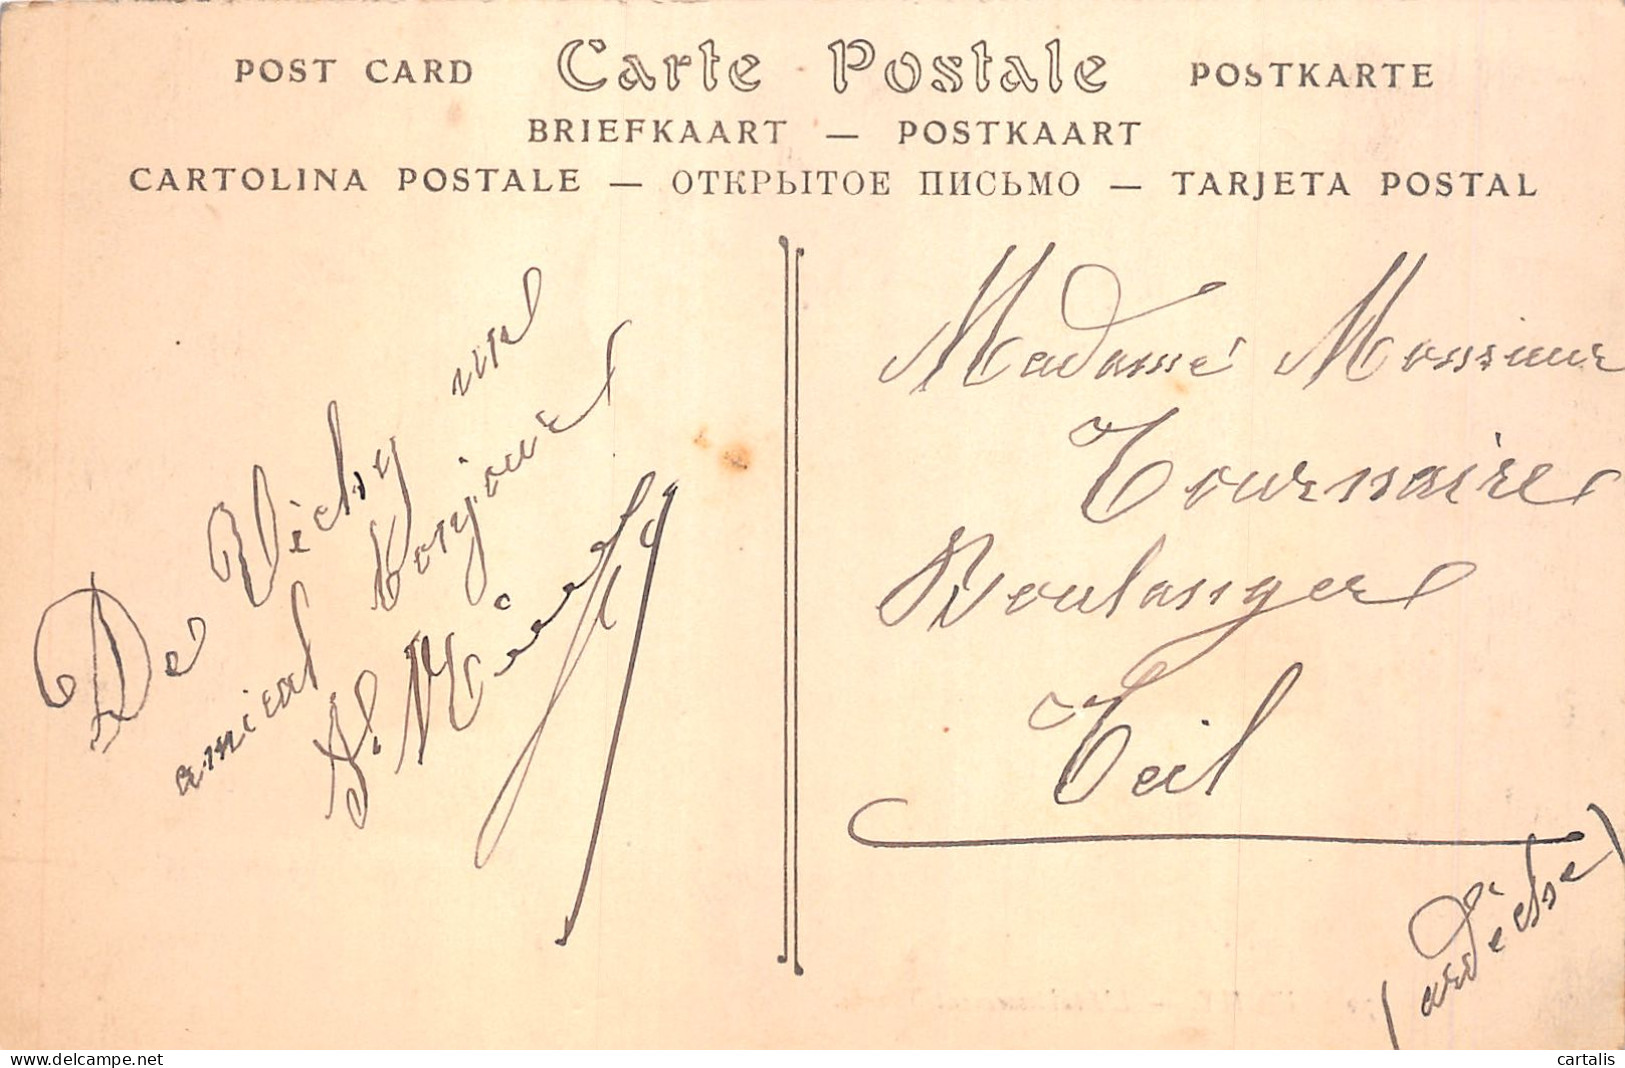 POST CARD Carte Postale POSTKARTE
BRIEFKAART — POSTKAART
CARTOLINA POSTALE — ОТКРЫТОЕ ПИСЬМО — TARJETA POSTAL
De Vichy un
amical bonjour
Madame Monsieur
Tournaire
Boulanger
Teil
(ardèche)
cartalis